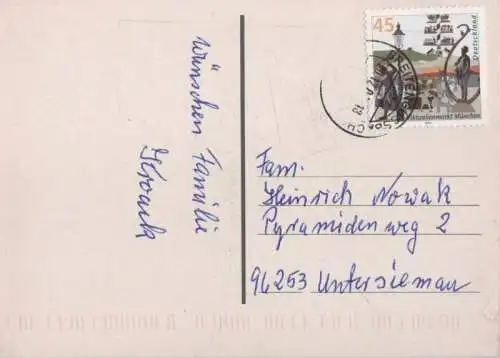 wünschen Familie
Fam.
Heinrich Nowak
Pyramidenweg 2
96253 Untersiemau
45
Deutschland
Viktualienmarkt München